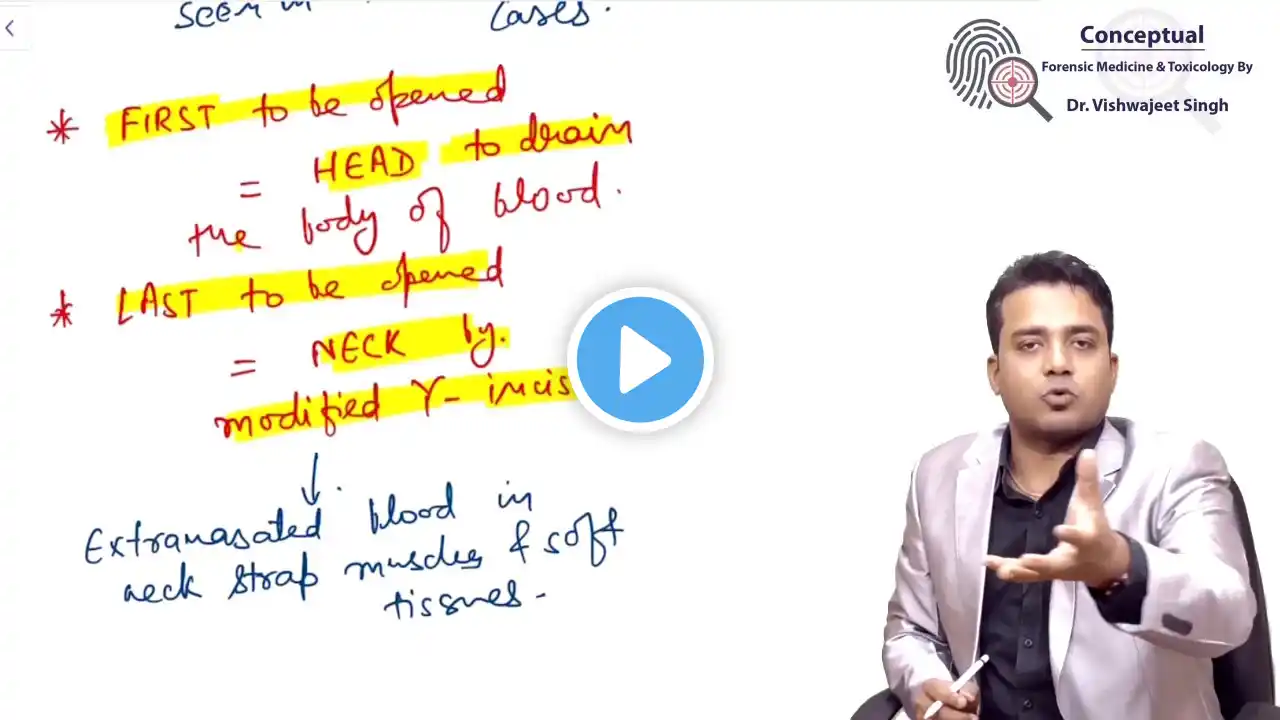 seen in cases.
* FIRST to be opened
= HEAD to drain
the body of blood.
* LAST to be opened
= NECK by.
modified Y- incis
Extravasated blood in
neck strap muscles & soft
tissues -
Conceptual
Forensic Medicine & Toxicology By
Dr. Vishwajeet Singh